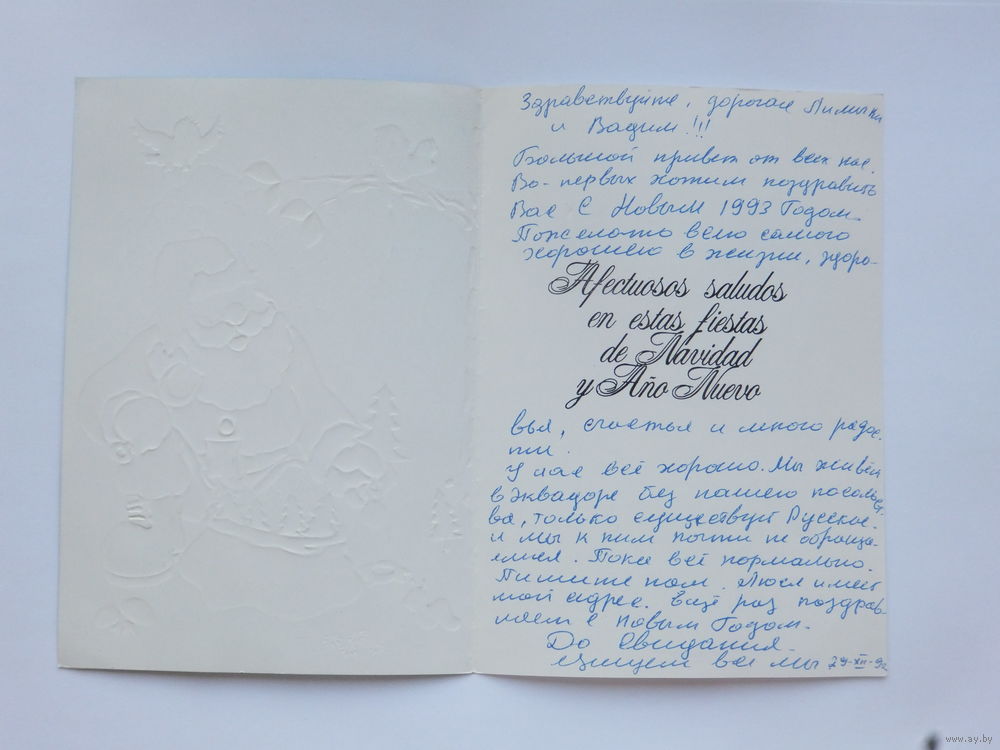 Здравствуйте, дорогая
и Вадим!!!
Большой привет от всех нас.
Во-первых хотим поздравить
Вас С Новым 1993 Годом.
всего самого
хорошего в жизни, здоро-
Afectuosos saludos
en estas fiestas
de Navidad
y Año Nuevo
вья, счастья и много радос-
ти.
У нас всё хорошо. Мы живём
в Эквадоре без нашего посольст-
ва, только Русское.
и мы к ним почти не обраща-
емся. Пока всё нормально.
Пишите нам. Люся имеет
мой адрес. Ещё раз поздрав-
ляем с Новым Годом.
До свидания.
все мы 29-XII-92
www.ay.by